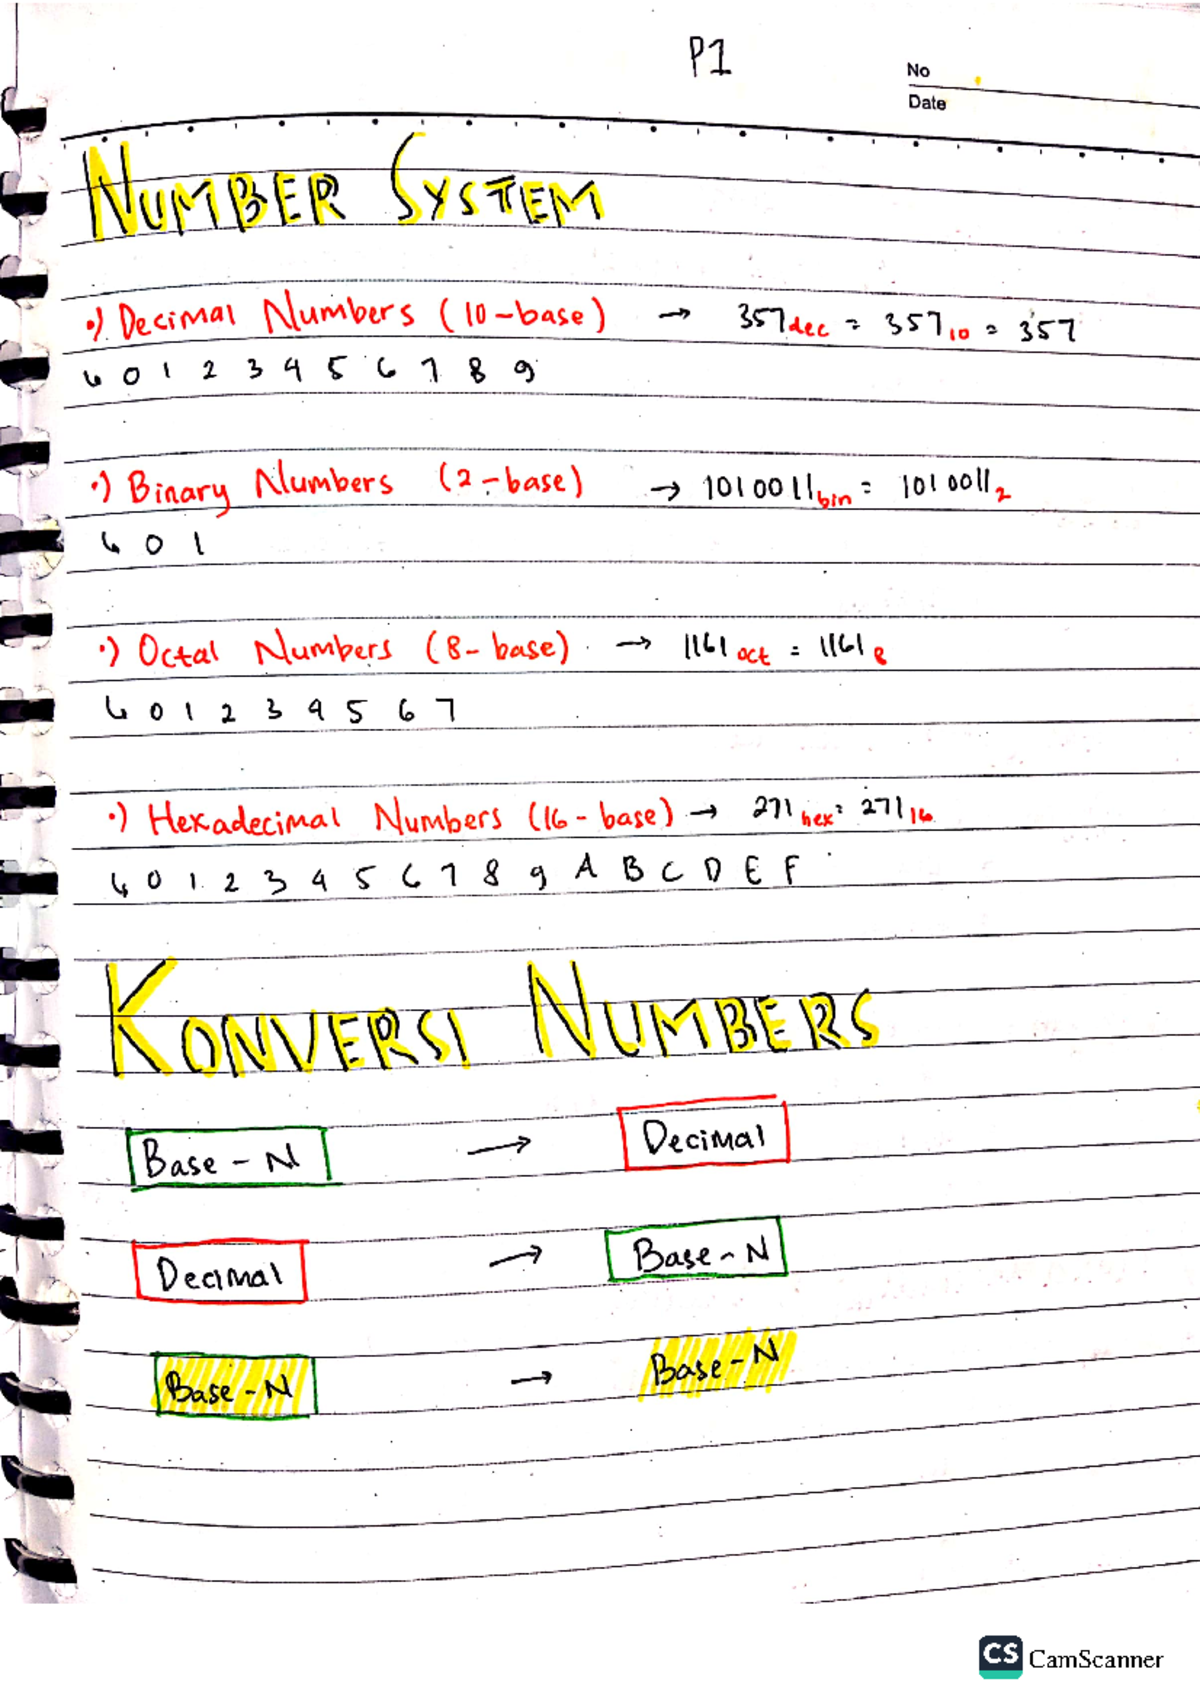 P1
No
Date
NUMBER SYSTEM
•) Decimal Numbers (10-base) → 357dec = 357₁₀ = 357
↳ 0 1 2 3 4 5 6 7 8 9
•) Binary Numbers (2-base) → 1010011bin = 1010011₂
↳ 0 1
•) Octal Numbers (8-base) → 1161oct = 1161₈
↳ 0 1 2 3 4 5 6 7
•) Hexadecimal Numbers (16-base) → 271hex = 271₁₆
↳ 0 1 2 3 4 5 6 7 8 9 A B C D E F
KONVERSI NUMBERS
Base-N → Decimal
Decimal → Base-N
Base-N → Base-N
CS CamScanner